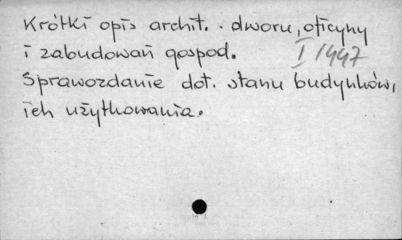 Krótki opis archit. dworu, oficyny
i zabudowań gospod. I 1447
Sprawozdanie dot. stanu budynków,
ich użytkowania.